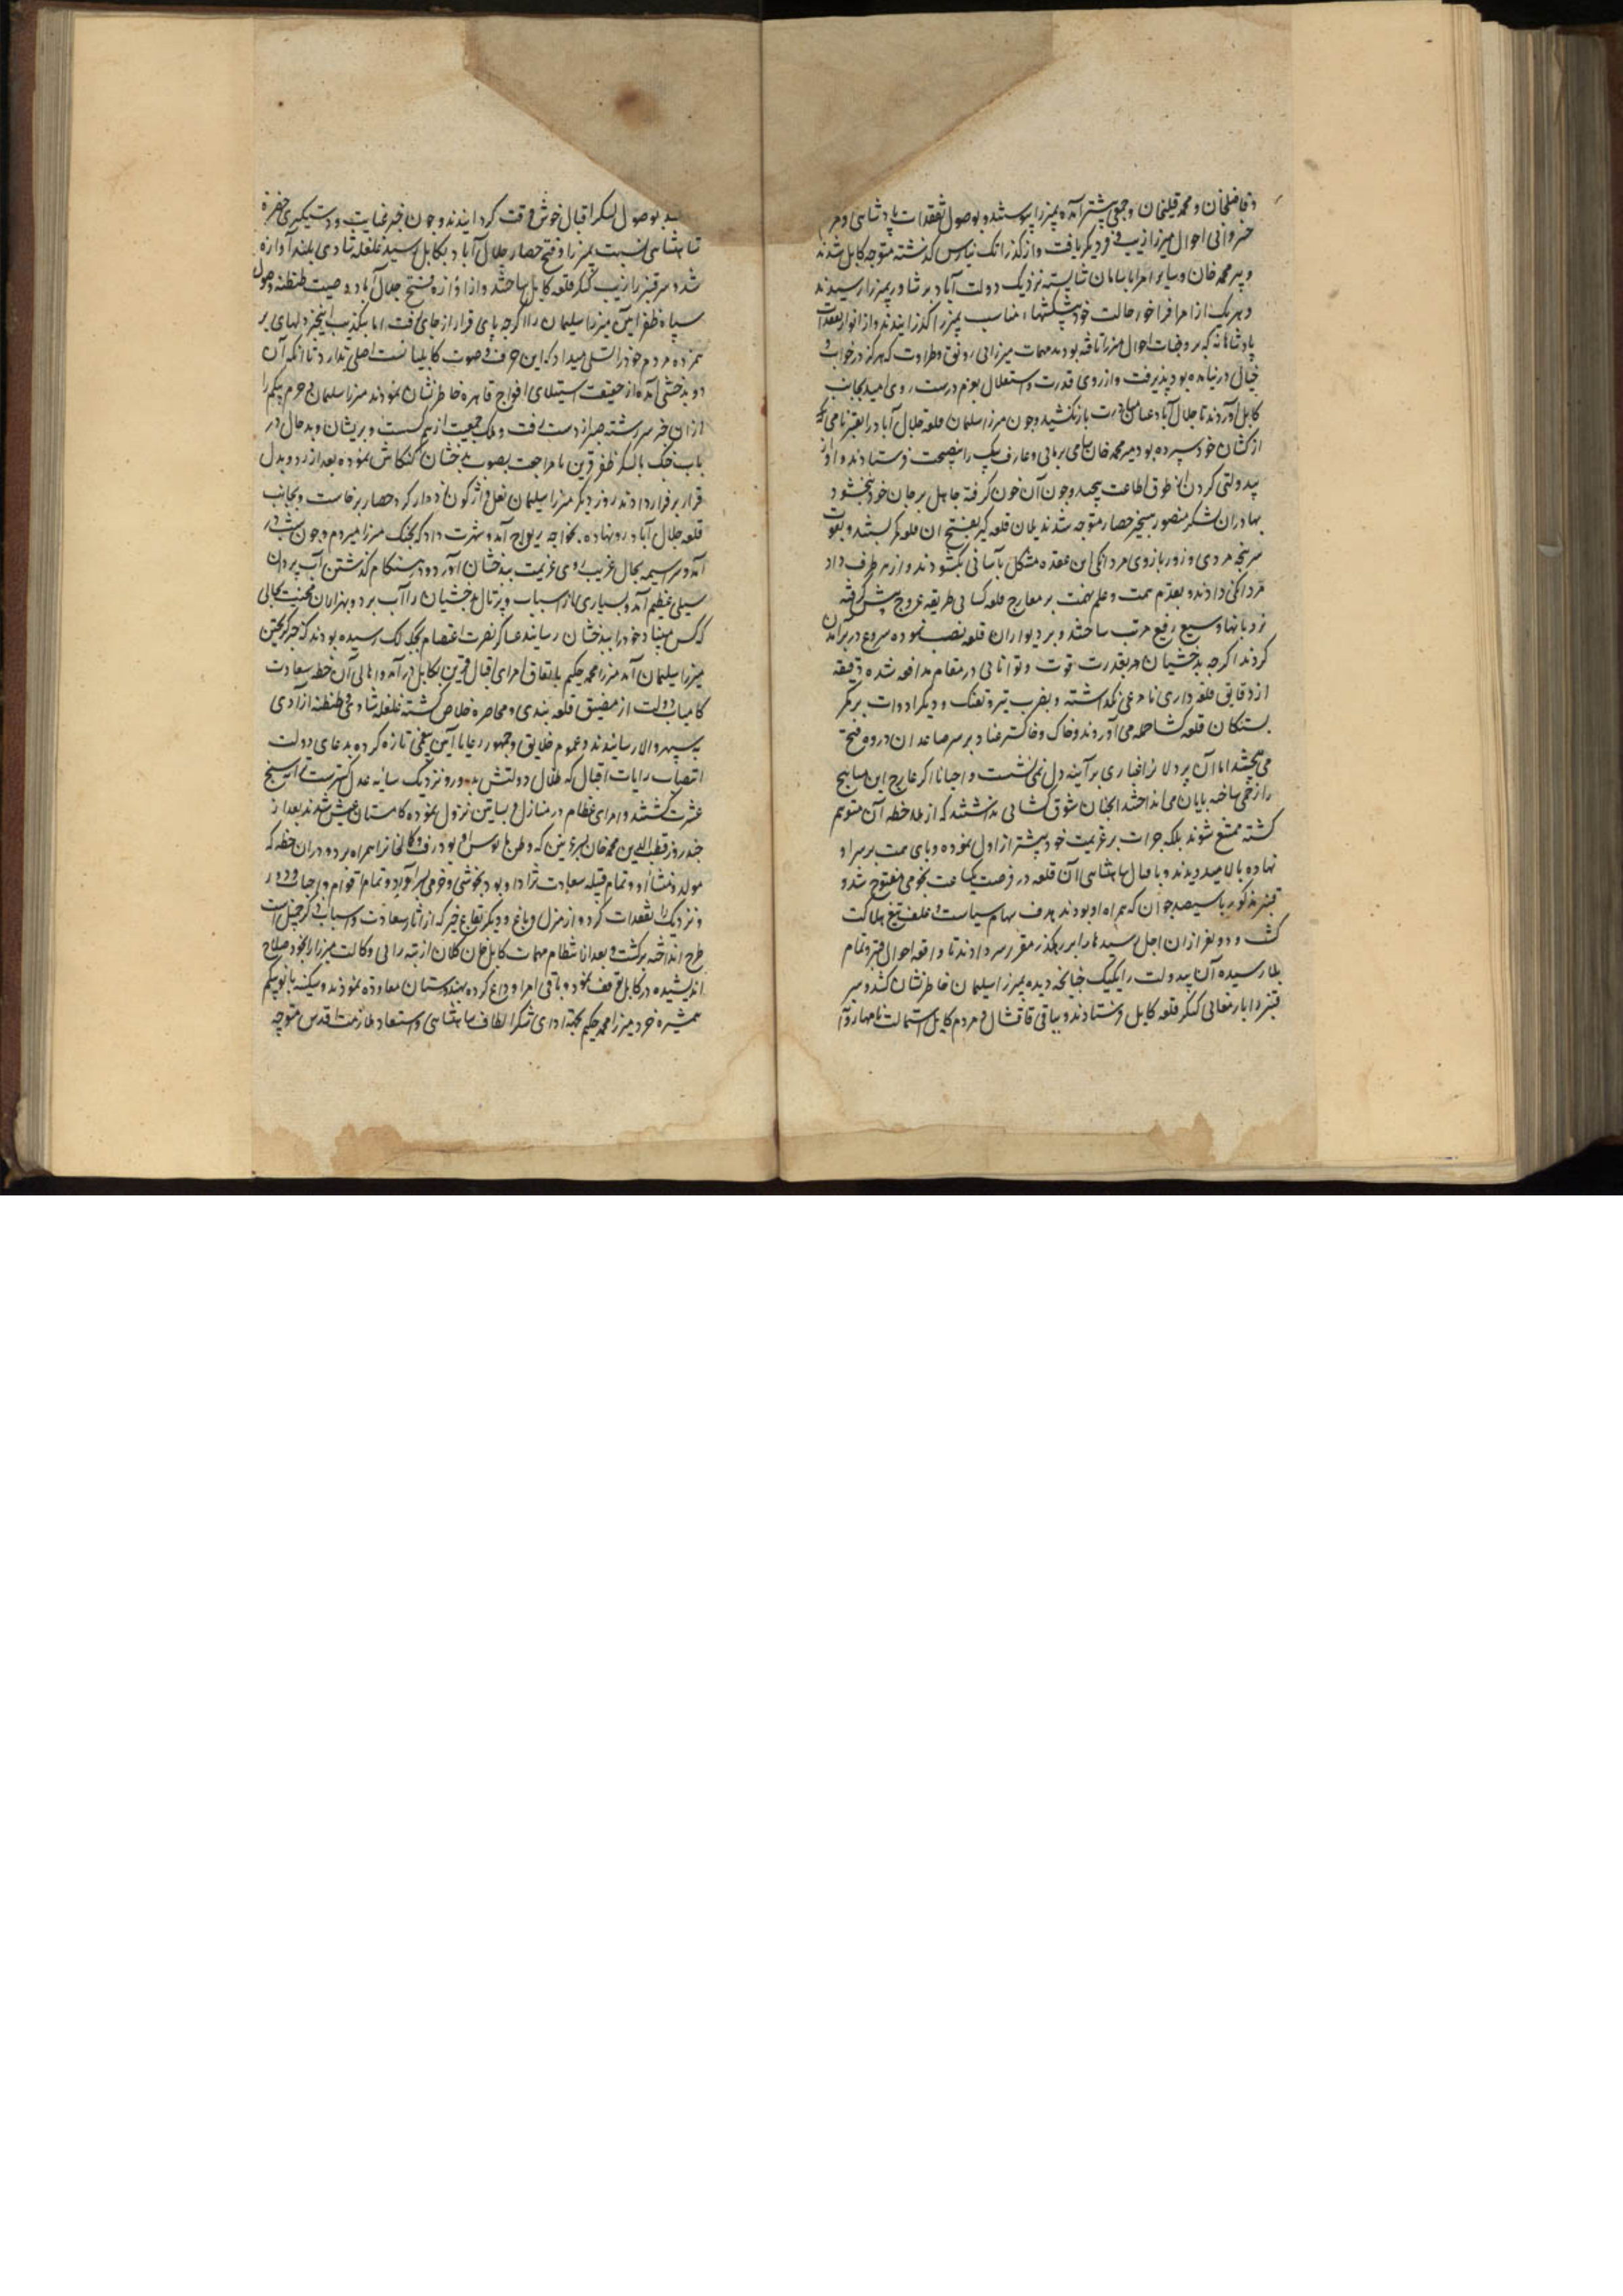 و فاضلخان و محمد قلیخان و جمعی پیشتر آمده بمیرزا پیوستند و بوصول تفقدات پادشاهی و مر
خسروانی احوال میرزا زیب و فر دیگر یافت و از گذر اتک نیارس گذشته متوجه کابل شدند
و پیر محمد خان و سایر امرا با سامان شایسته نزدیک دولت آباد بر شاور بمیرزا رسیدند
و هر یک از امرا فراخور حالت خود پیشکشهاء مناسب بمیرزا گذرانیدند و از انوار تفقدات
پادشاهانه که بر وجنات احوال میرزا تافته بود مهمات میرزایی رونق و طراوت که هرگز در خواب و
خیال در نیامده بود پذیرفت و از روی قدرت و استقلال بعزم درست روی امید بجانب
کابل آوردند تا جلال آباد عنان مبادرت باز نکشید و چون میرزا سلیمان قلعه جلال آباد را بقنبر نامی که
از کسان خود سپرده بود میر محمد خان سامی بربانی و عارف بیگ را بنصیحت فرستادند و او از
بیدولتی گردن از طوق اطاعت پیچید و چون آن خون گرفته جاهل بر جان خود نبخشود
بهادران لشکر منصور بتسخیر حصار متوجه شدند یلان قلعه گیر بفتح ان قلعه کمر بستند و بقوت
سرپنجه مردی و زور بازوی مردانگی این عقده مشکل باسانی بگشودند و از هر طرف داد
مردانگی دادند و بقدم همت و علم نهمت بر معارج قلعه کشایی طریقه عروج پیش گرفته
نردبانها وسیع رفیع مرتب ساختند و بر دیوار ان قلعه نصب نموده شروع در بر آمدن
کردند اگرچه بدخشیان هم بقدرت قوت و توانایی در مقام مدافعه شده دقیقه
از دقایق قلعه داری نامرعی نگذاشته و بضرب تیر و تفنگ و دیگر ادوات بر یکدگر
بستگان قلعه کشا حمله می آوردند و خاک و خاکستر عناد بر سر صاعدان دروه فتح
می بیختند اما آن پردلانرا غباری بر آینه دل نمی نشست و احیانا اگر عارج این مناهج
را زخمی ساخته بپایان می انداختند انچنان شوق کشایی نداشتند که از ملاحظه آن متوهم
گشته ممتنع شوند بلکه جرات بر عزیمت خود پیشتر از اول نموده و پای همت بر سر او
نهاده بالا میدویدند و باقبال شاهنشاهی آن قلعه در فرصت یکساعت نجومی مفتوح شد و
قنبر مذکور با سیصد جوان که همراه او بودند هدف سهام سیاست و علف تیغ هلاکت
گشت و دو نفر از ان اجل رسیدها را بر رهگذر مقرر سر دادند تا واقعه احوال قنبر و تمام
بلا رسیده آن بیدولت را یکیک چنانچه دیده بمیرزا سلیمان خاطرنشان کنند و سر
قنبر را بارمغانی کنگر قلعه کابل فرستادند و بباقی قاقشال و مردم کابل استمالت نامها روان
بوصول لشکر اقبال خوش وقت گردانیدند و چون خبر عنایت و دستگیری حضرة
شاهنشاهی نسبت بمیرزا و فتح حصار جلال آباد بکابل رسید غلغله شادی بلند آوازه
شد و سر قنبر را زیب کنگر قلعه کابل ساختند و از آوازه فتح جلال آباد و صیت طنطنه وصول
سپاه ظفر آیین میرزا سلیمان را اگرچه پای قرار از جای رفت اما بتکذیب این خبر دلهای بر
همزده مردم خود را تسلی میداد که این حرف و صوت کابلیانست اصلی ندارد تا انکه آن
دو بدخشی آمده از حقیقت استیلای افواج قاهره خاطرنشان نمودند میرزا سلیمان و حرم بیگم را
از ان خبر سر رشته صبر از دست رفت و سلک جمعیت از هم گسست و پریشان و بدحال در
باب جنگ با لشکر ظفر قرین یا مراجعت بصوب بدخشان کنگاش نموده بعد از رد و بدل
قرار بر فرار دادند روز دیگر میرزا سلیمان نعل واژگون زده از گرد حصار برخاست و بجانب
قلعه جلال آباد رو نهاده بخواجه ریواج آمد و شهرت داد که بجنگ میرزا میروم و چون شب در
آمد سراسیمه بحال غریب روی عزیمت ببدخشان آورد و در هنگام گذشتن آب پروان
سیلی عظیم آمد و بسیاری از اسباب و پرتال بدخشیان را آب برد و بهزاران محنت بحالی
که کس مبیناد خود را ببدخشان رسانید عساکر نصرت اعتصام بجگدلک رسیده بودند که خبر گریختن
میرزا سلیمان آمد میرزا محمد حکیم باتفاق امرای اقبال قرین بکابل در آمد و اهالی آن خطه سعادت
کامیاب دولت از مضیق قلعه بندی و محاصره خلاص گشته غلغله شادی و طنطنه آزادی
به سپهر والا رسانیدند و عموم خلایق و جمهور رعایا آیین یغمی تازه کرده بدعای دولت
انتصاب رایات اقبال که ظلال دولتش بدور و نزدیک سایه عدل گسترست نواسنج
عشرت گشتند و امرای عظام در منازل و بساتین نزول نموده کامستان عیش شدند بعد از
چند روز قطب الدین محمد خان بغزنین که وطن مانوس او بود رفت و کلانخانرا همراه برد و در ان خطه که
مولد و منشأ او و تمام قبیله سعادت نژاد او بود بخوشی و خرمی بسر آورد و تمام اقوام و احباب دور
و نزدیک را تفقدات کرد و از منزل و باغ و دیگر بقاع خیر که از اثار سعادت و اسباب ذکر جمیل است
طرح انداخته برگشت و بعد از انتظام مهمات کابل خان کلان از تبه رایی وکالت میرزا را بخود صلاح
اندیشیده در کابل توقف نمود و باقی امرا وداع کرده بهندوستان معاودة نمودند و سکینه بانو بیگم
همشیره خرد میرزا محمد حکیم بجهة ادای شکر الطاف شاهنشاهی و استسعاد ملازمت اقدس متوجه